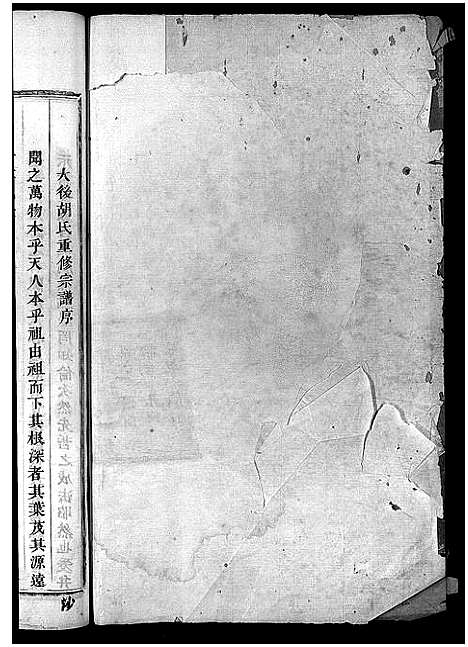 大後胡氏重修宗譜序
聞之萬物本乎天人本乎祖由祖而下其根深者其葉茂其源遠